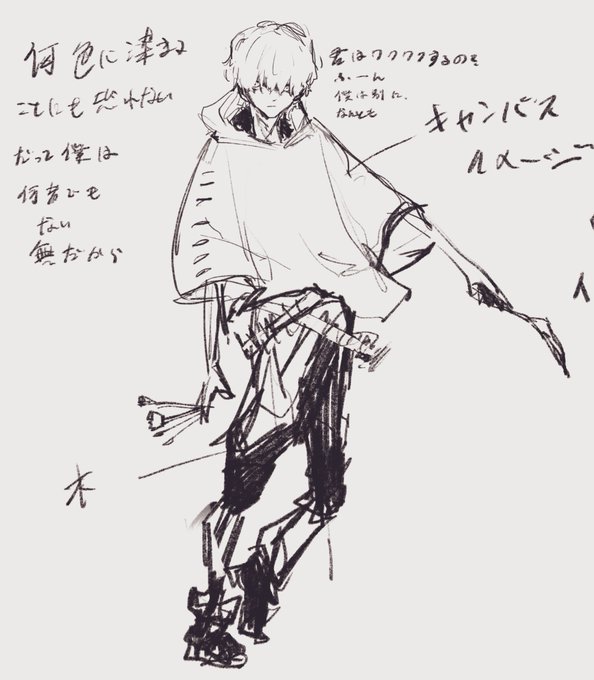 何色に染まる
ことにも恐れない
だって僕は
何者でも
ない
無だから
君はワクワクするのを
ふーん
僕は別に、
なんとも
キャンバス
イメージ
木
イ